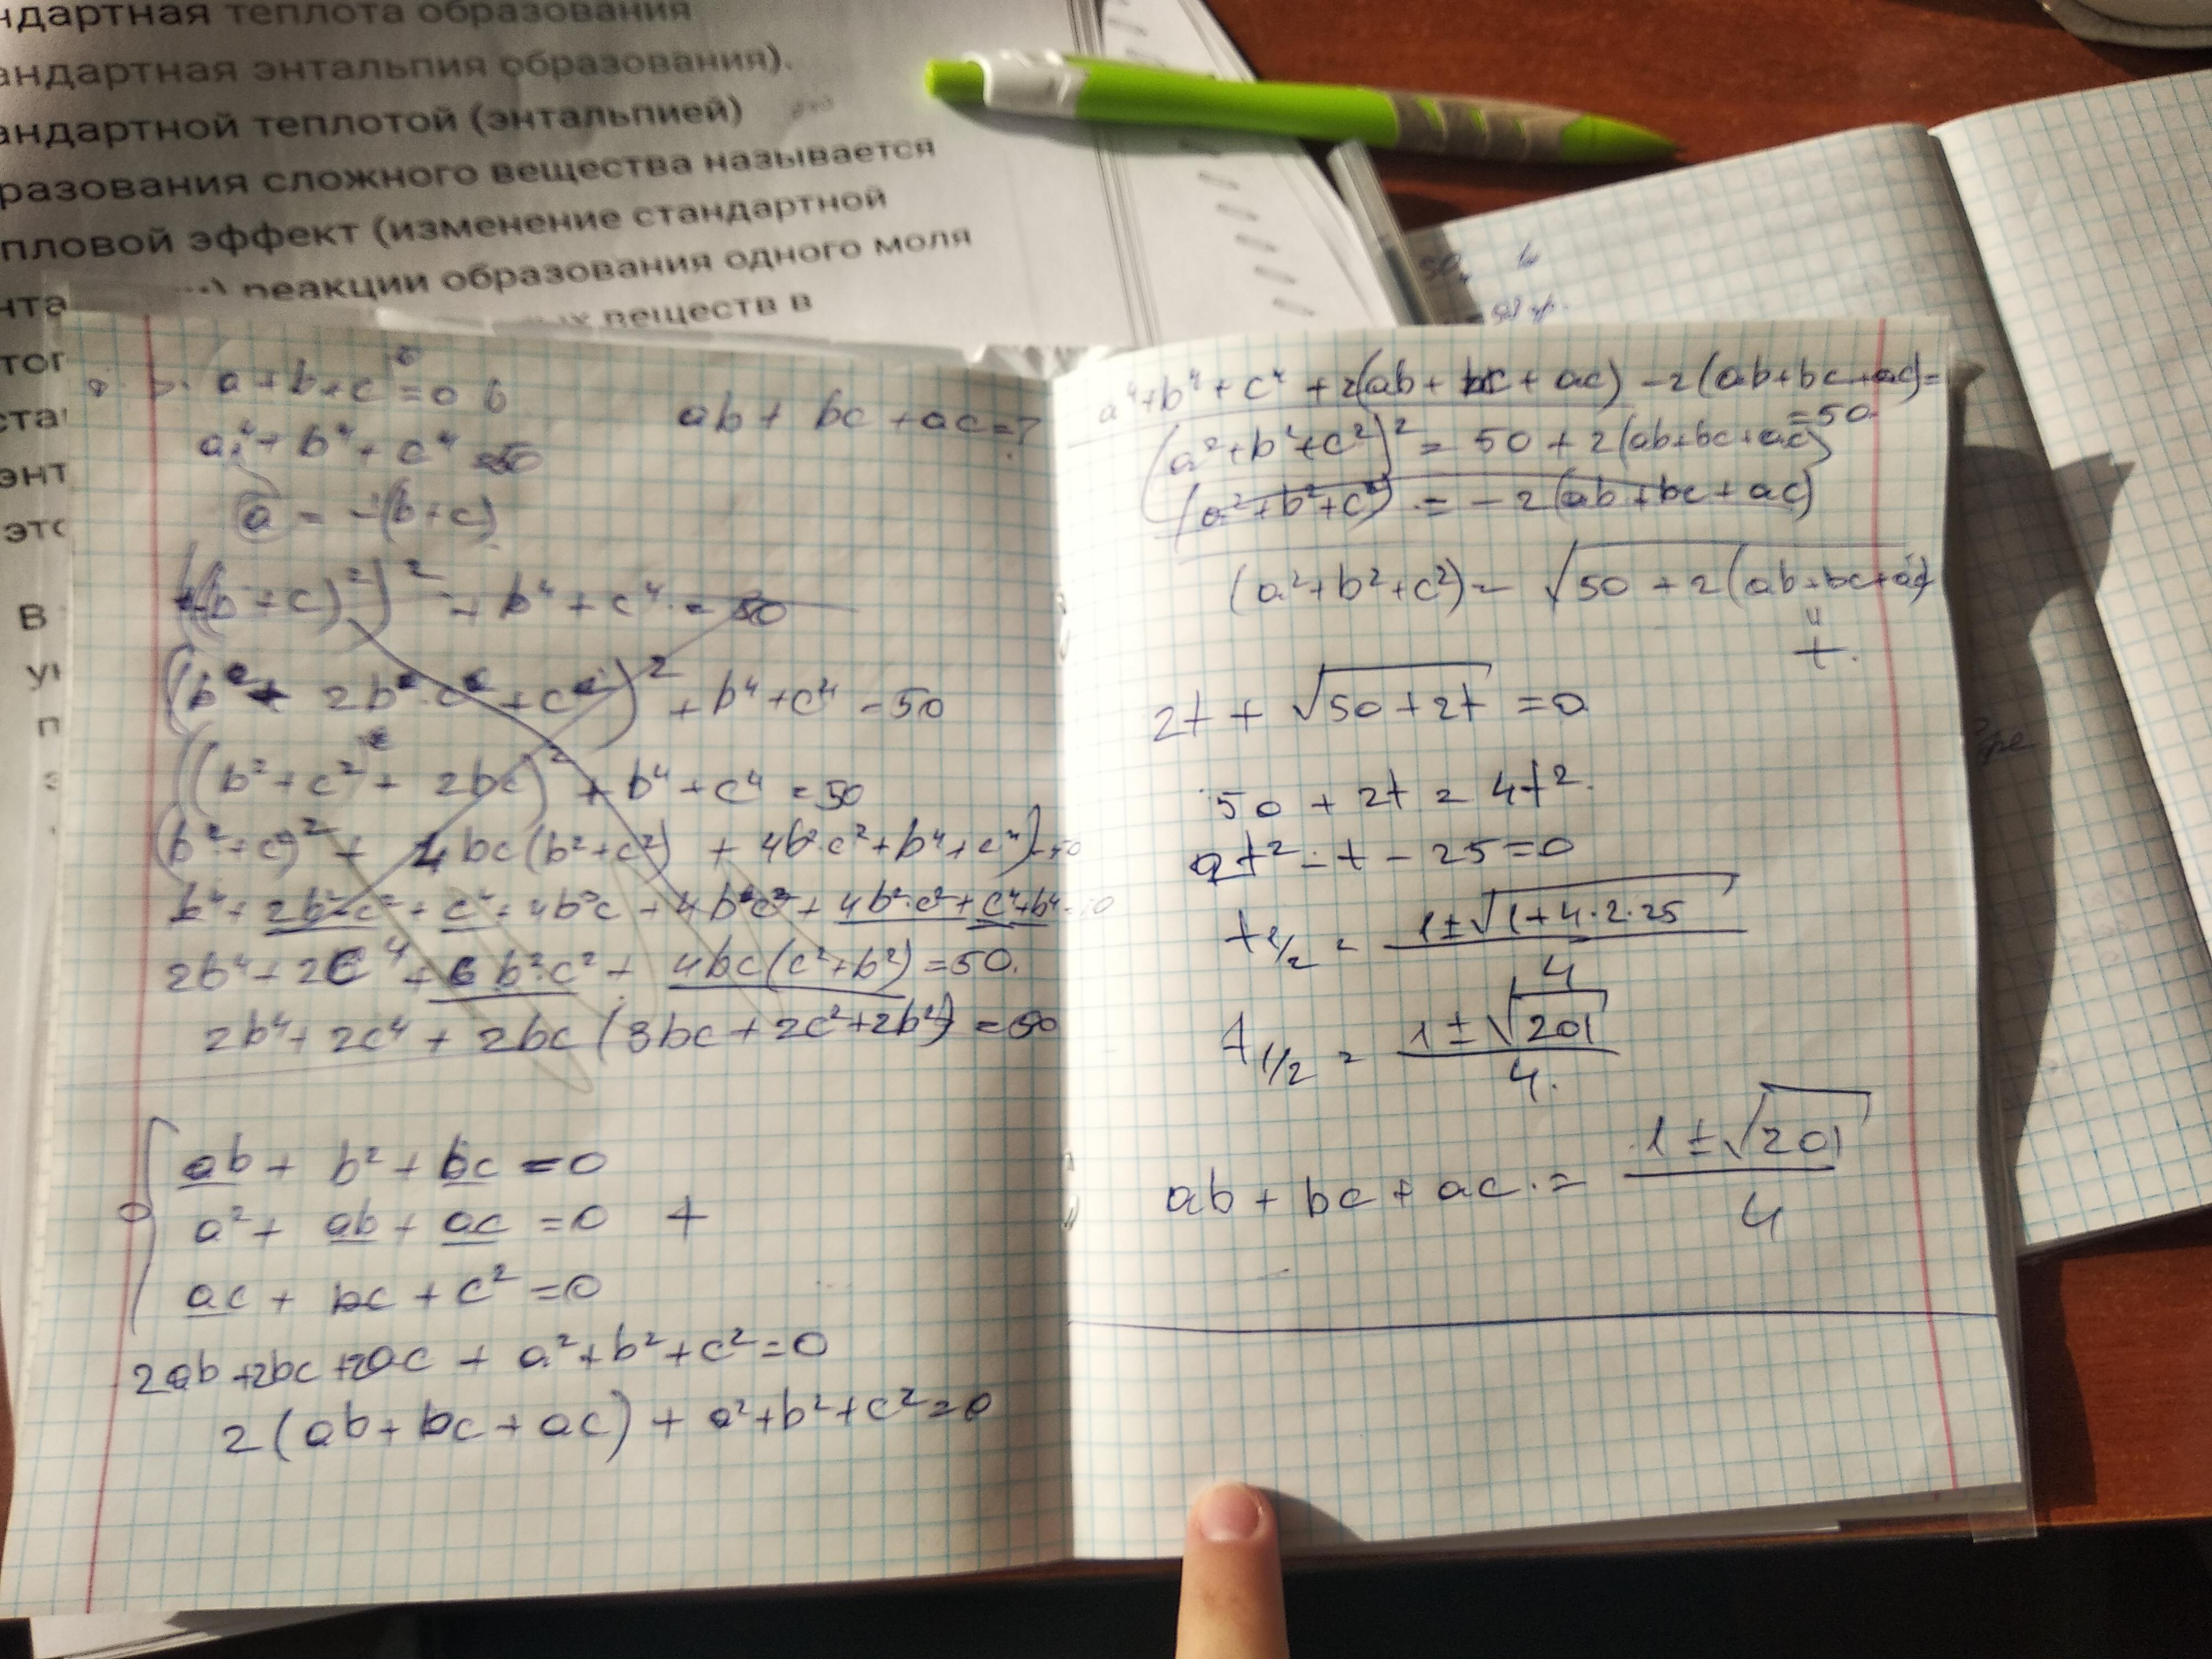 ндартная теплота образования
андартная энтальпия образования).
андартной теплотой (энтальпией)
разования сложного вещества называется
пловой эффект (изменение стандартной
реакции образования одного моля
веществ в
нта
тог
ста
энт
это
В
a + b + c = 0
ab + bc + ac = ?
a⁴ + b⁴ + c⁴ = 50
a = -(b+c)
((b+c)²)² + b⁴ + c⁴ = 50
(b² + 2b·c + c²)² + b⁴ + c⁴ = 50
((b² + c² + 2bc)² + b⁴ + c⁴ = 50
(b² + c²)² + 4bc(b² + c²) + 4b²c² + b⁴ + c⁴) = 50
b⁴ + 2b²c² + c⁴ + 4b³c + 4bc³ + 4b²·c² + c⁴ + b⁴ = 50
2b⁴ + 2c⁴ + 6b²·c² + 4bc(c² + b²) = 50.
2b⁴ + 2c⁴ + 2bc(3bc + 2c² + 2b²) = 50
ab + b² + bc = 0
a² + ab + ac = 0 +
ac + bc + c² = 0
2ab + 2bc + 2ac + a² + b² + c² = 0
2(ab + bc + ac) + a² + b² + c² = 0
a⁴ + b⁴ + c⁴ + 2(ab + bc + ac) - 2(ab + bc + ac) =
= 50
(a² + b² + c²)² = 50 + 2(ab + bc + ac)
(a² + b² + c²) = -2(ab + bc + ac)
(a² + b² + c²) = √50 + 2(ab + bc + ac)
t.
2t + √50 + 2t = 0
50 + 2t = 4t².
2t² - t - 25 = 0
t1/2 = 1 ± √1 + 4·2·25 / 4
t1/2 = 1 ± √201 / 4.
ab + bc + ac = 1 ± √201 / 4